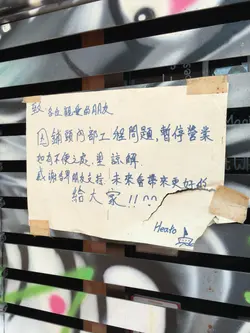 致各位親愛的朋友
因鋪頭內部工程問題,暫停營業
如有不便之處,望諒解.
感謝各界朋友支持,未來會帶來更好的
給大家!!??
Heato